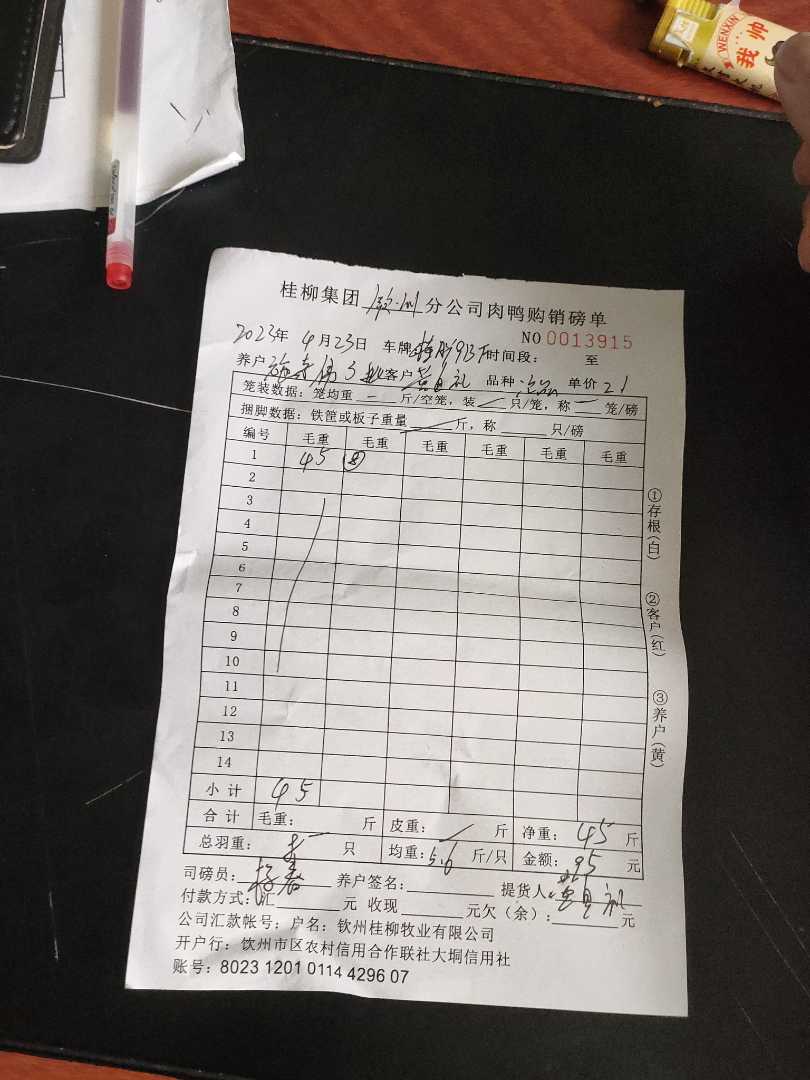 WENXIN
我帅
桂柳集团 钦州 分公司肉鸭购销磅单
NO 0013915
2023年 4月23日 车牌 时间段： 至
养户 客户 品种 单价 21
笼装数据：笼均重 一 斤/空笼，装 只/笼，称 一 笼/磅
捆脚数据：铁筐或板子重量 斤，称 只/磅
编号 毛重 毛重 毛重 毛重 毛重 毛重
1 45 ⑧
2
3
4
5
6
7
8
9
10
11
12
13
14
小计 45
合计 毛重： 斤 皮重： 斤 净重：45 斤
总羽重： 只 均重：5.6 斤/只 金额：95 元
司磅员： 养户签名： 提货人：
付款方式：汇 元 收现 元欠（余）： 元
公司汇款帐号：户名：钦州桂柳牧业有限公司
开户行：钦州市区农村信用合作联社大垌信用社
账号：8023 1201 0114 4296 07
①存根(白)
②客户(红)
③养户(黄)